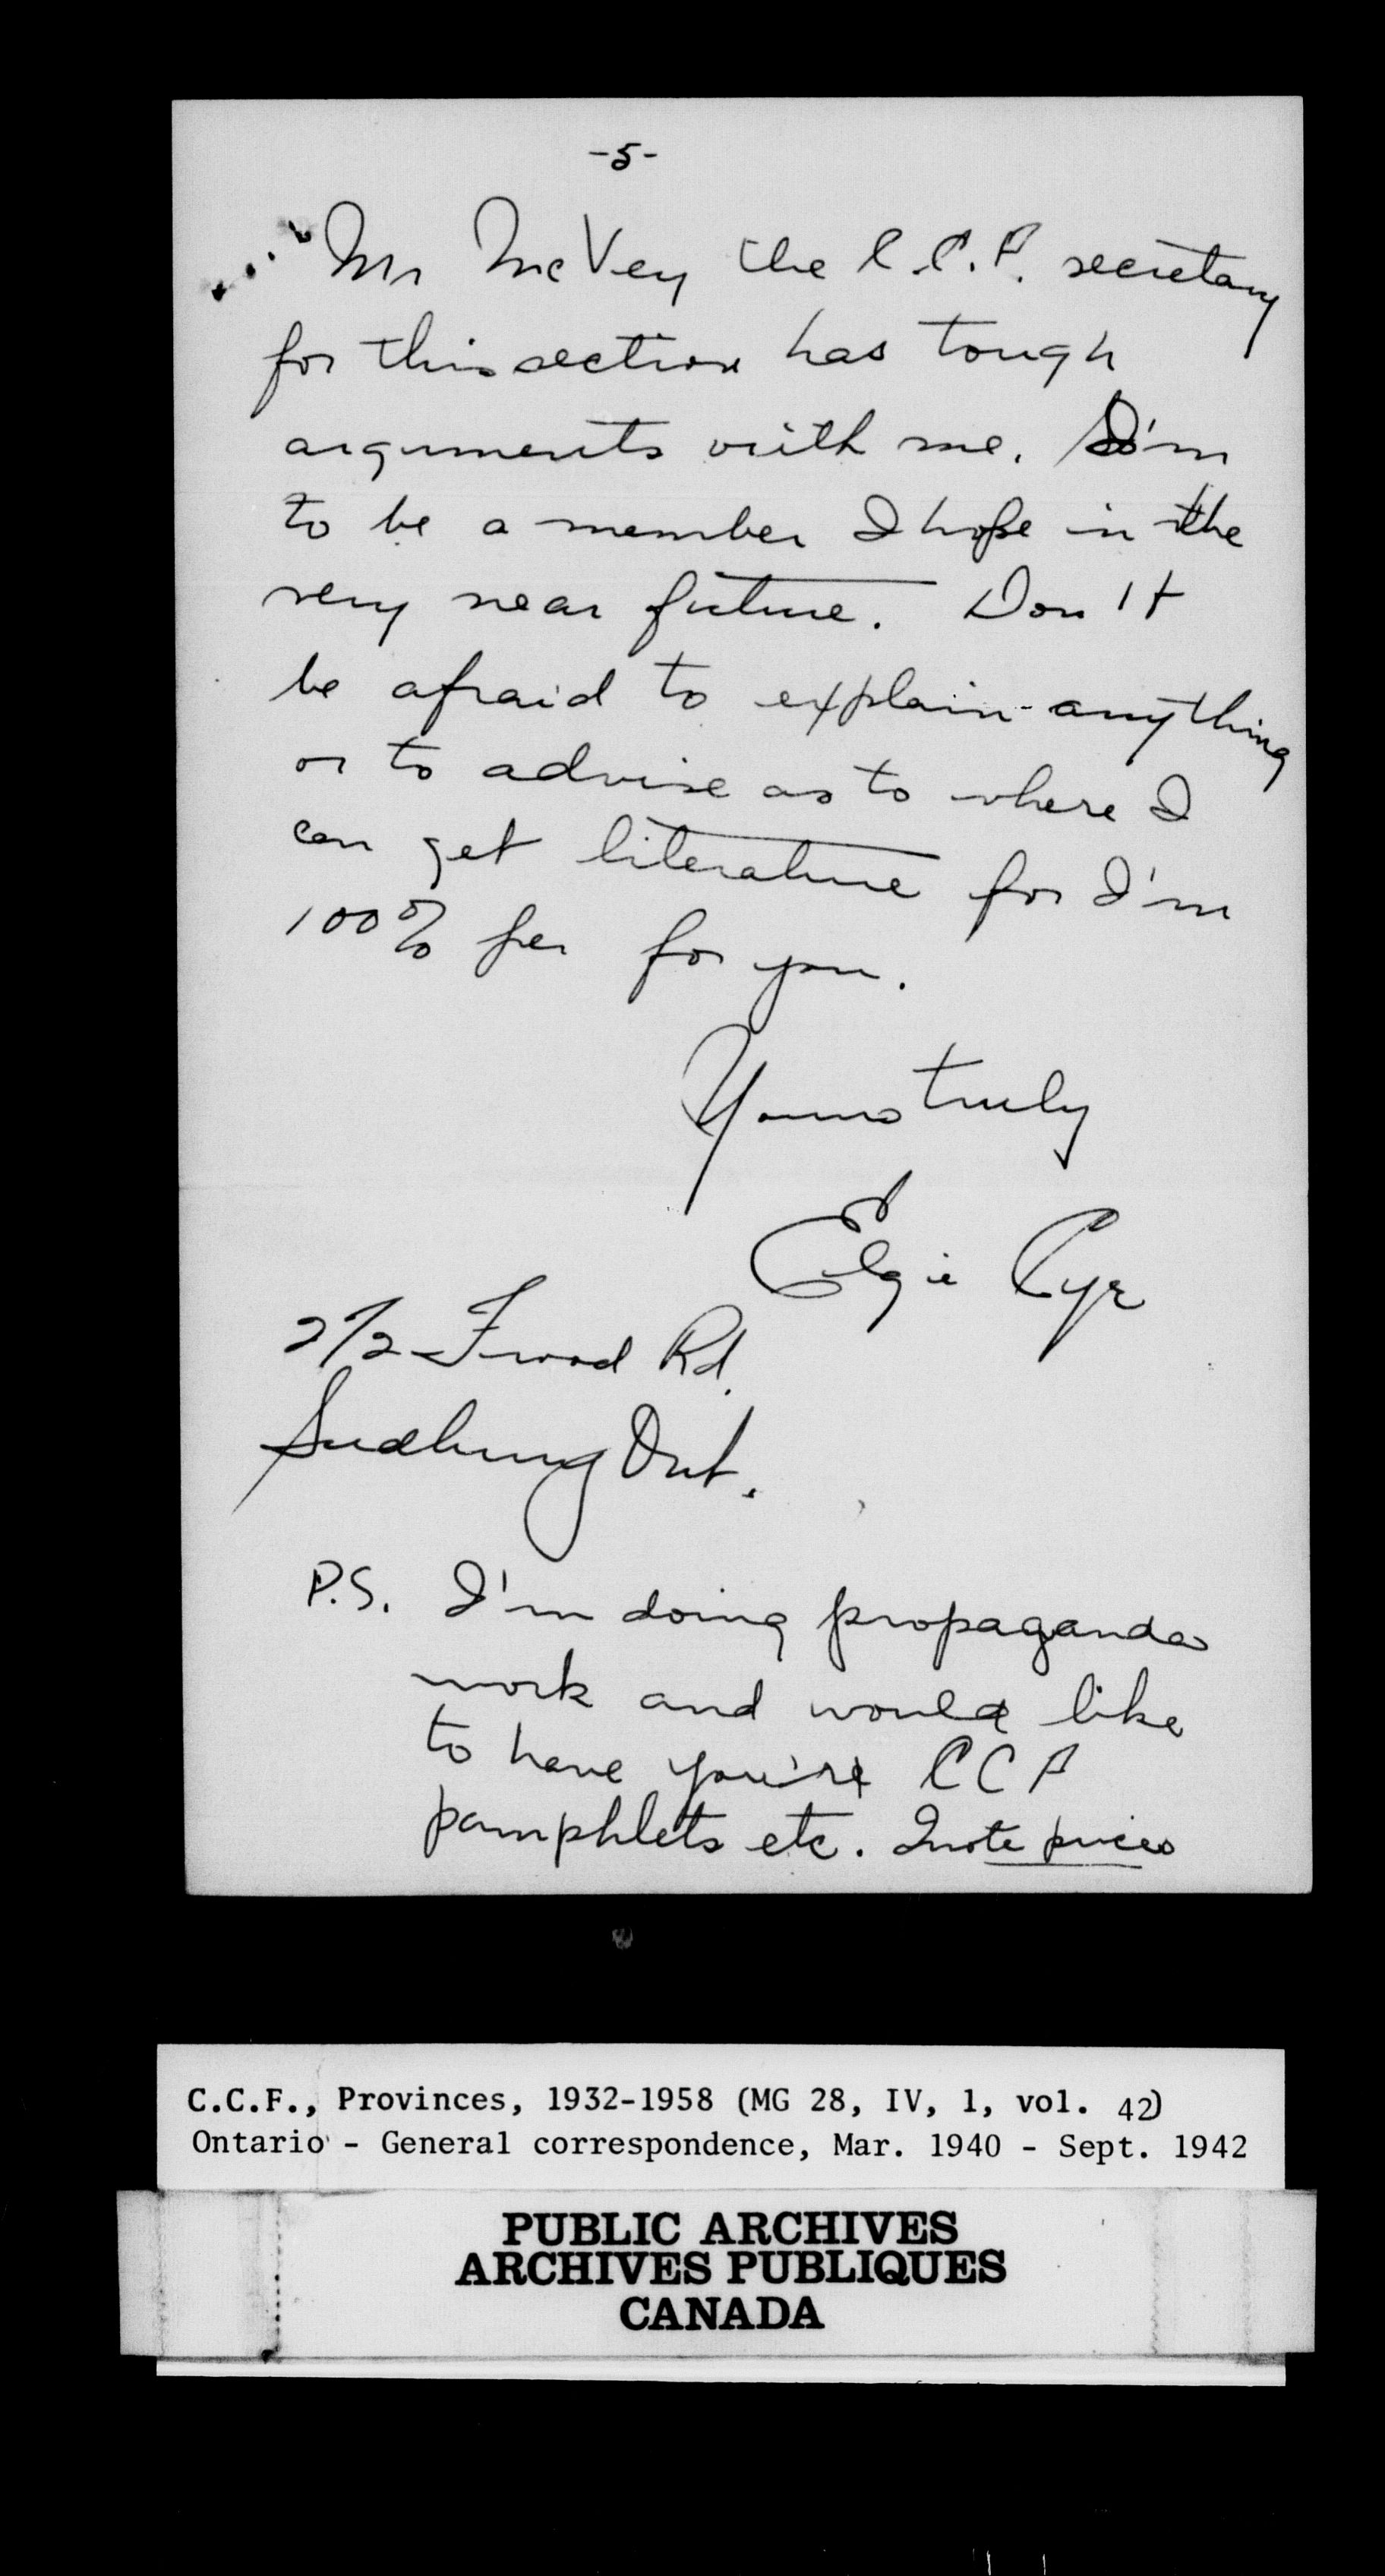 -5-
Mr McVey the C.C.F. secretary
for this section has tough
arguments with me. I'm
to be a member I hope in the
very near future. Don't
be afraid to explain anything
or to advise as to where I
can get literature for I'm
100% per for you.
Yours truly
Elgie Cyr
212 Frood Rd.
Sudbury Ont.
P.S. I'm doing propaganda
work and would like
to have you're CCF
pamphlets etc. Quote prices
C.C.F., Provinces, 1932-1958 (MG 28, IV, 1, vol. 42)
Ontario - General correspondence, Mar. 1940 - Sept. 1942
PUBLIC ARCHIVES
ARCHIVES PUBLIQUES
CANADA